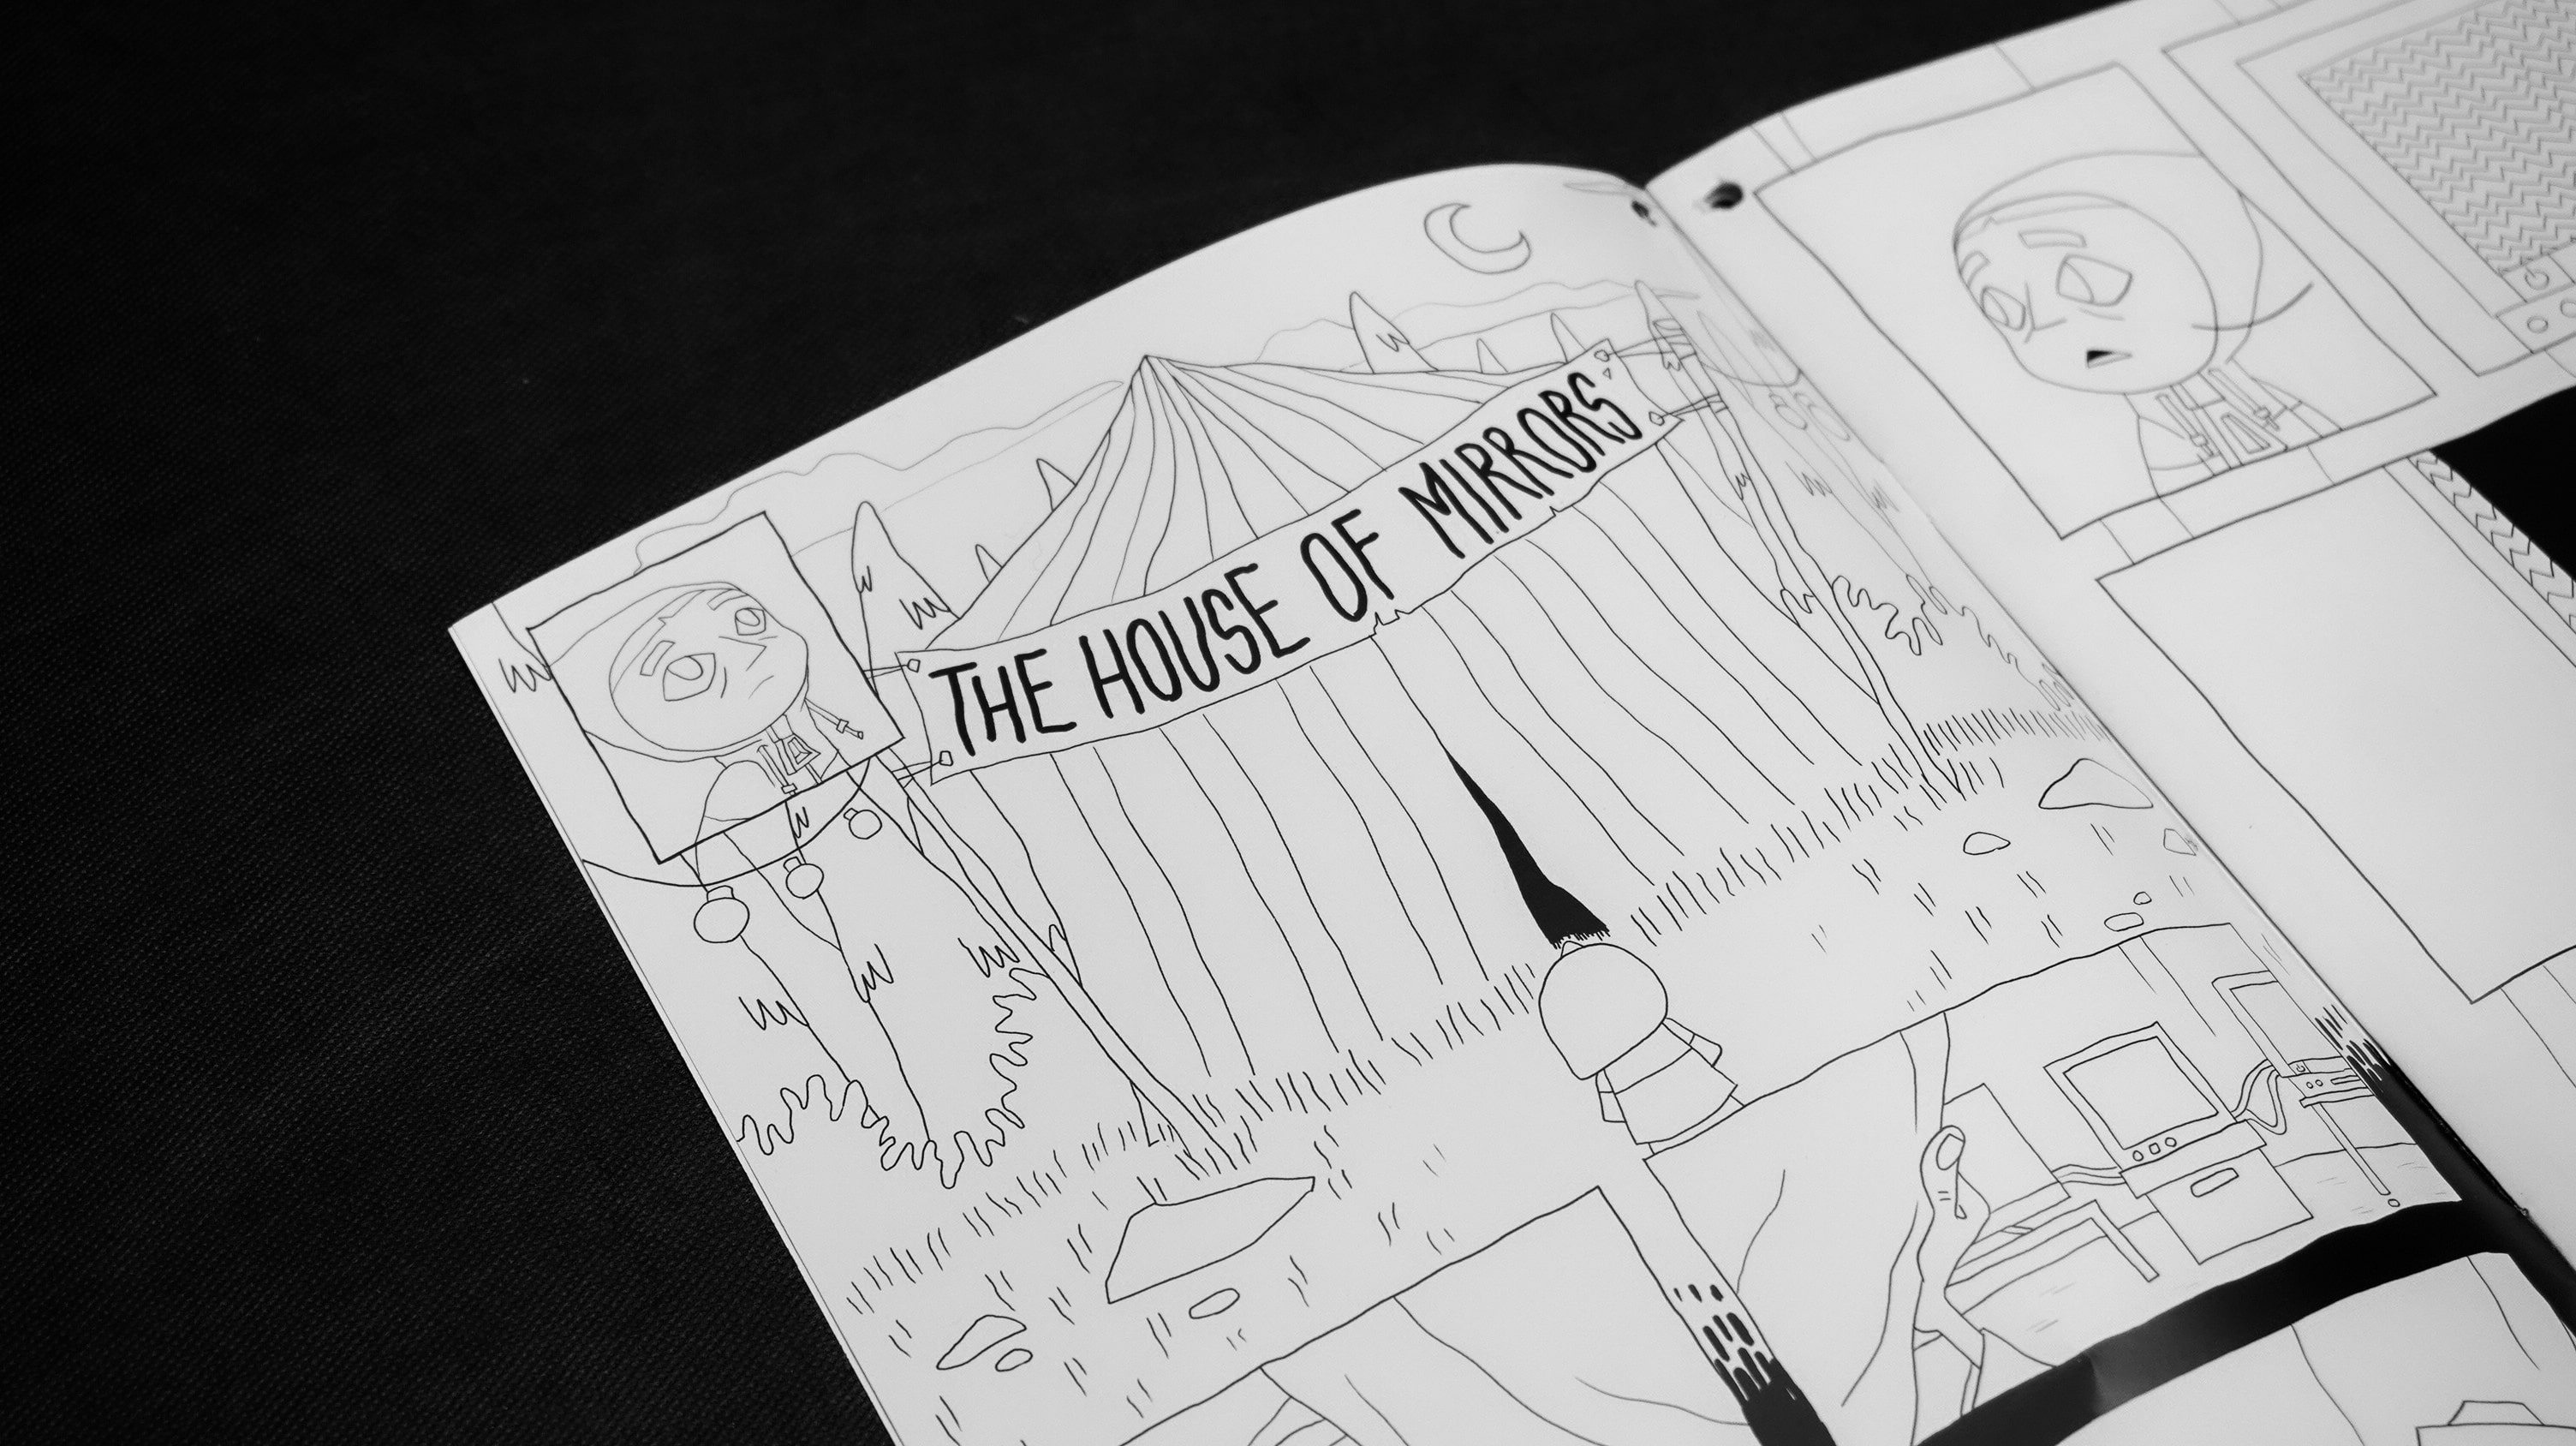 THE HOUSE OF MIRRORS